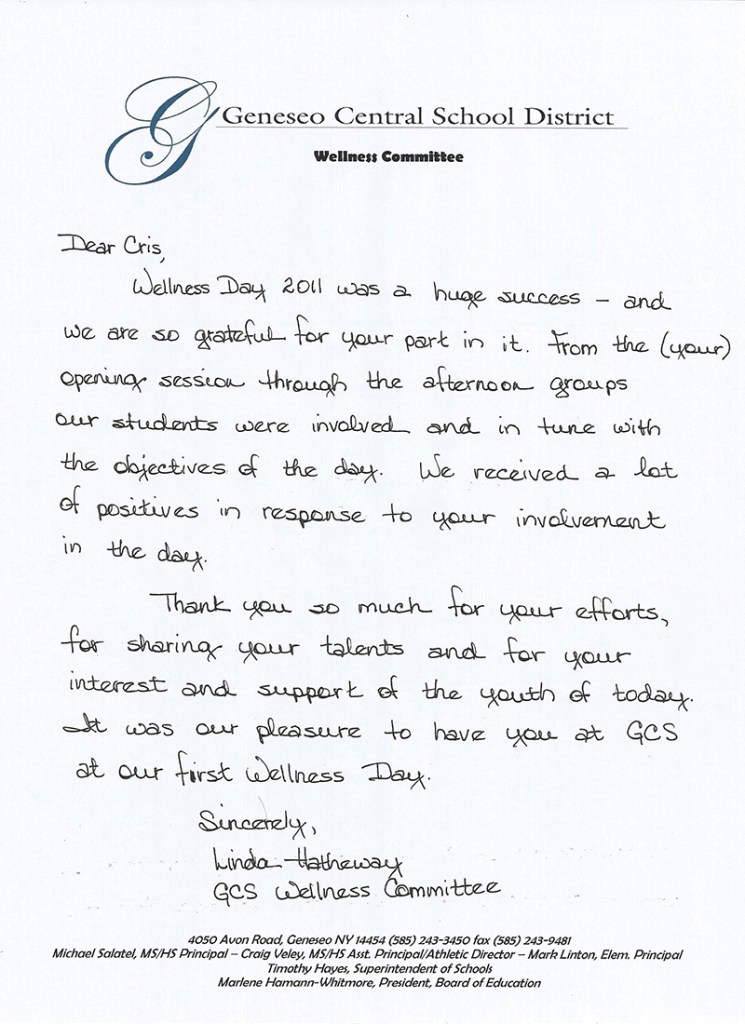 Geneseo Central School District
Wellness Committee
Dear Cris,
Wellness Day 2011 was a huge success – and
we are so grateful for your part in it. From the (your)
opening session through the afternoon groups
our students were involved and in tune with
the objectives of the day. We received a lot
of positives in response to your involvement
in the day.
Thank you so much for your efforts,
for sharing your talents and for your
interest and support of the youth of today.
It was our pleasure to have you at GCS
at our first Wellness Day.
Sincerely,
Linda Hatheway
GCS Wellness Committee
4050 Avon Road, Geneseo NY 14454 (585) 243-3450 fax (585) 243-9481
Michael Salatel, MS/HS Principal – Craig Veley, MS/HS Asst. Principal/Athletic Director – Mark Linton, Elem. Principal
Timothy Hayes, Superintendent of Schools
Marlene Hamann-Whitmore, President, Board of Education